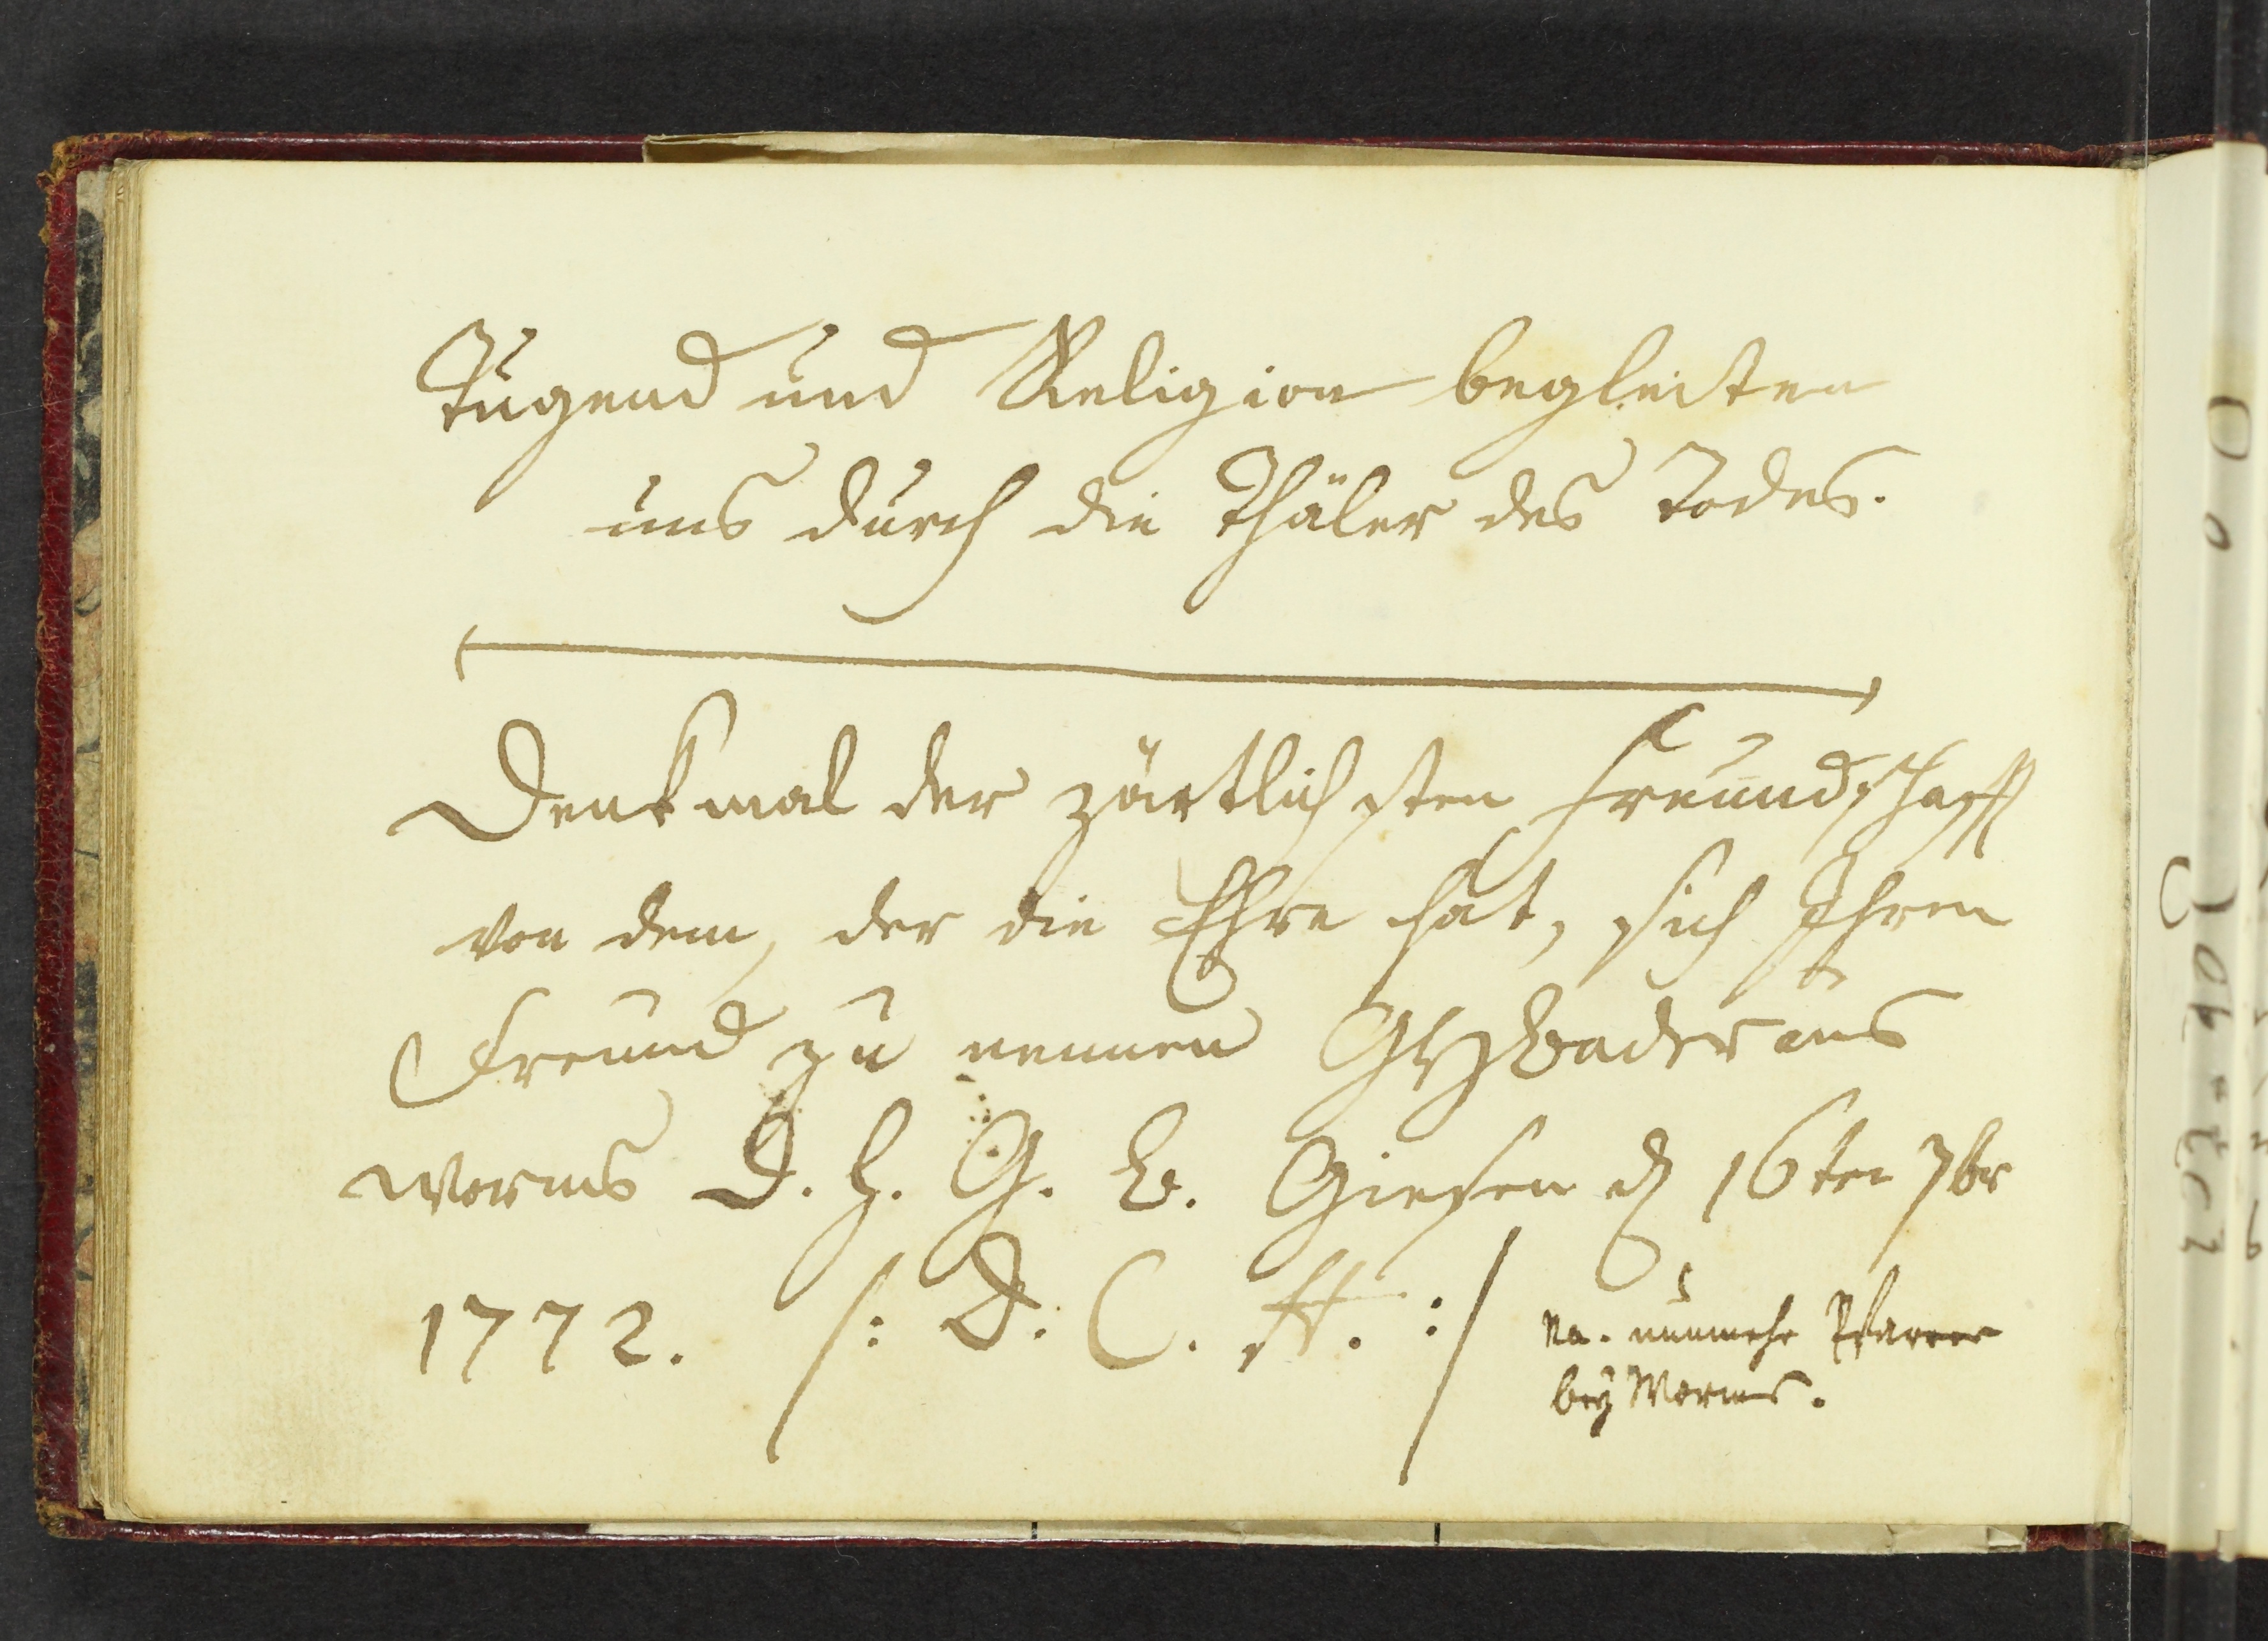 Tugend und Religion begleiten
uns durch die Thäler des Todes.
Denkmal der zärtlichsten Freundschafft
von dem, der die Ehre hat, sich Ihren
Freund zu nennen aus
Worms D. h. G. B. Giesen d 16ten 7br
1772. /: D. C. :/
nunmehr Pfarrer
bey Worms.